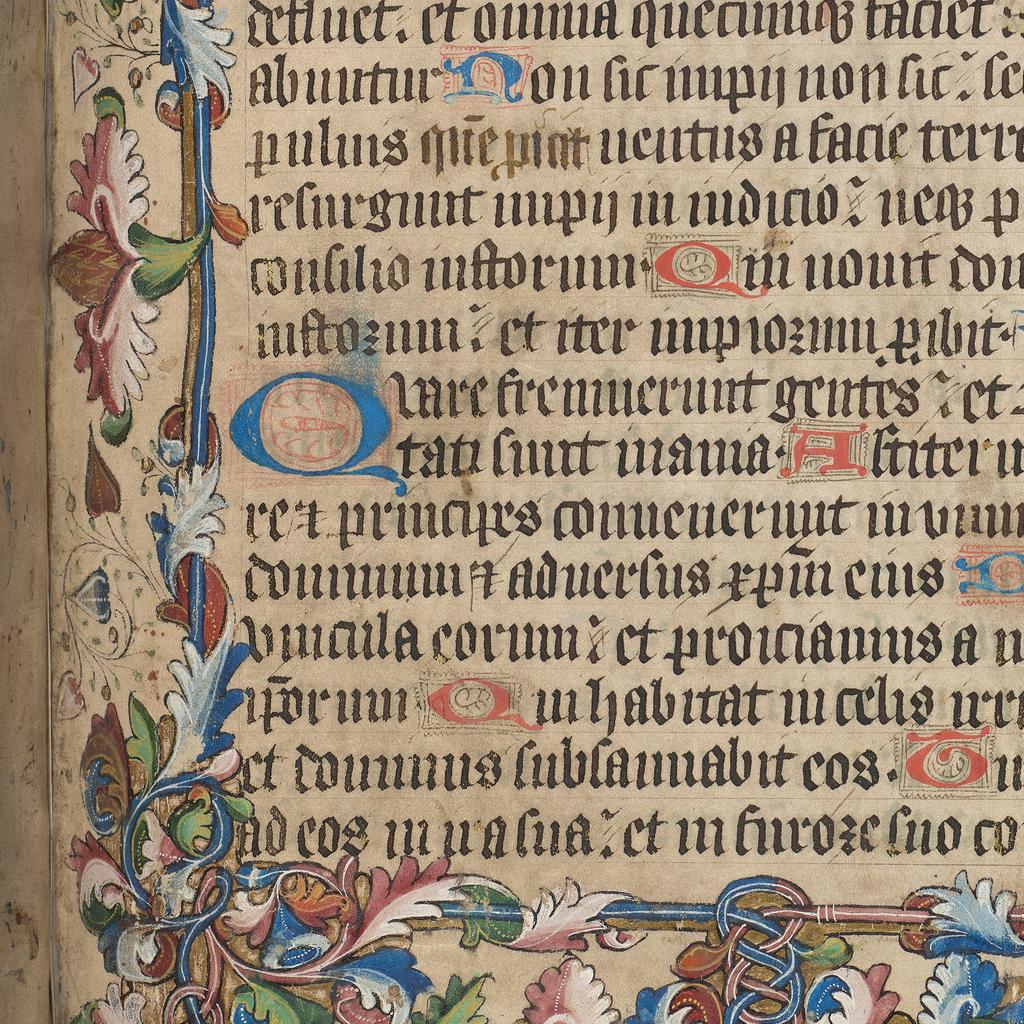 defluet. et omnia quecumqꝫ faciet
abuntur Non sic impij non sic: se
puluis que̅ picit uentus a facie terre
resurgunt impij in iudicio: neqꝫ p
consilio iustorum Qm̅ nouit dom
iustorum: et iter impiorum ꝑibit.
Quare fremuerunt gentes: et
tati sunt inania. Astiter
re ⁊ principes conuenerunt in vnum
dominum ⁊ aduersus xp̅m eius D
vincula eorum: et proiciamus a n
ip̅orum Qui habitat in celis irri
et dominus subsannabit eos. Tu
ad eos in ira sua: et in furore suo co